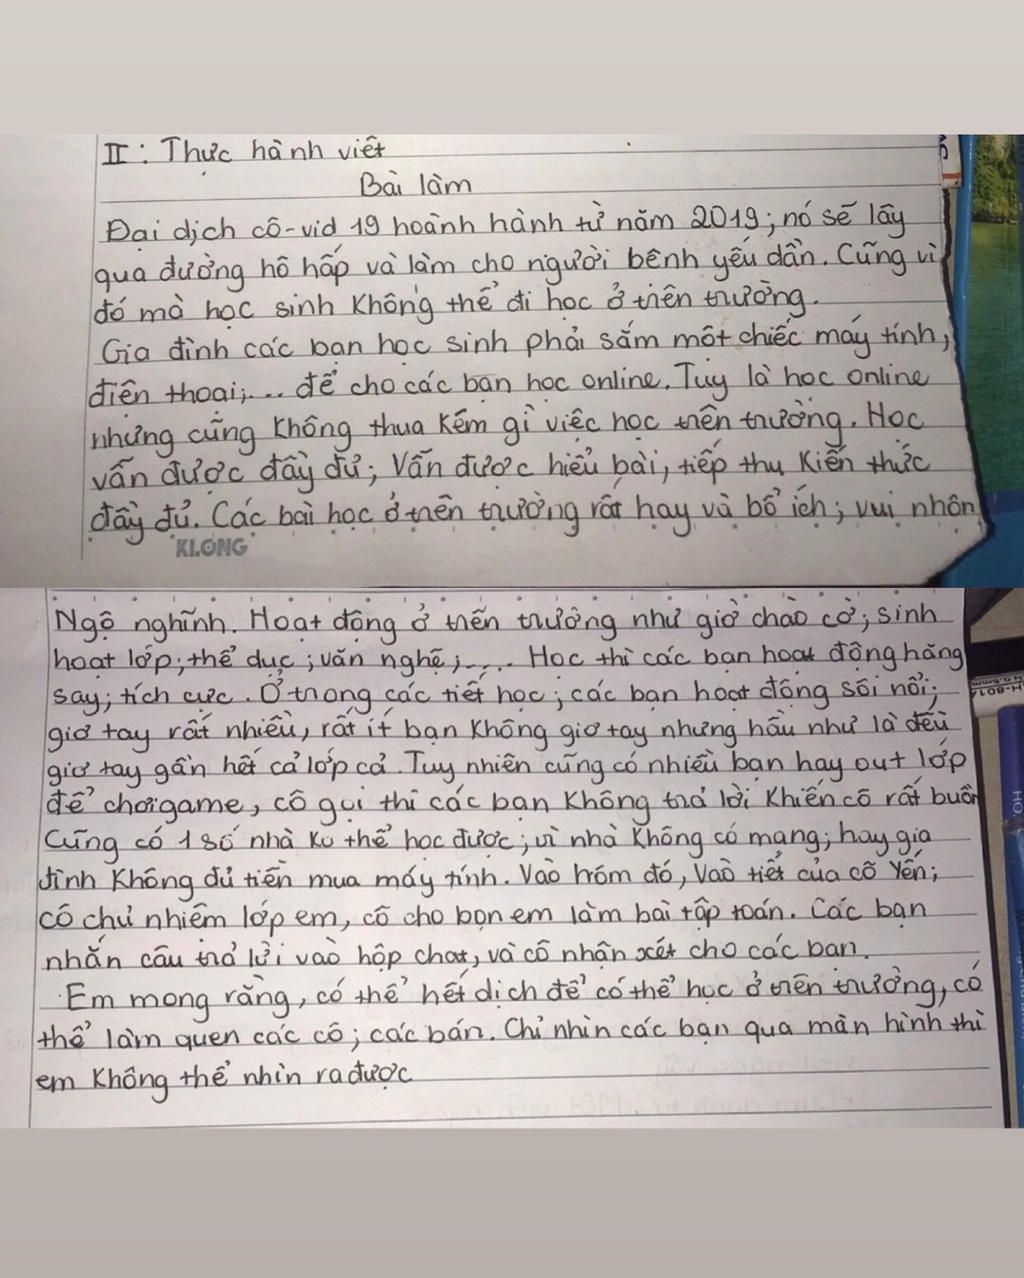 II: Thực hành viết
Bài làm
Đại dịch cô-vid 19 hoành hành từ năm 2019; nó sẽ lây
qua đường hô hấp và làm cho người bệnh yếu dần. Cũng vì
đó mà học sinh không thể đi học ở trên trường.
Gia đình các bạn học sinh phải sắm một chiếc máy tính,
điện thoại;... để cho các bạn học online. Tuy là học online
nhưng cũng không thua kém gì việc học trên trường. Học
vẫn được đầy đủ; vẫn được hiểu bài, tiếp thu kiến thức
đầy đủ. Các bài học ở trên trường rất hay và bổ ích; vui nhộn
KLONG
Ngộ nghĩnh. Hoạt động ở trên trường như giờ chào cờ; sinh
hoạt lớp; thể dục; văn nghệ;.... Học thì các bạn hoạt động hăng
say; tích cực. Ở trong các tiết học; các bạn hoạt động sôi nổi;
giơ tay rất nhiều, rất ít bạn không giơ tay nhưng hầu như là đều
giơ tay gần hết cả lớp cả. Tuy nhiên cũng có nhiều bạn hay out lớp
để chơi game, cô gọi thì các bạn không trả lời khiến cô rất buồn
Cũng có 1 số nhà ko thể học được; vì nhà không có mạng; hay gia
đình không đủ tiền mua máy tính. Vào hôm đó, vào tiết của cô Yến;
cô chủ nhiệm lớp em, cô cho bọn em làm bài tập toán. Các bạn
nhắn câu trả lời vào hộp chat, và cô nhận xét cho các bạn.
Em mong rằng, có thể hết dịch để có thể học ở trên trường, có
thể làm quen các cô; các bán. Chỉ nhìn các bạn qua màn hình thì
em không thể nhìn ra được